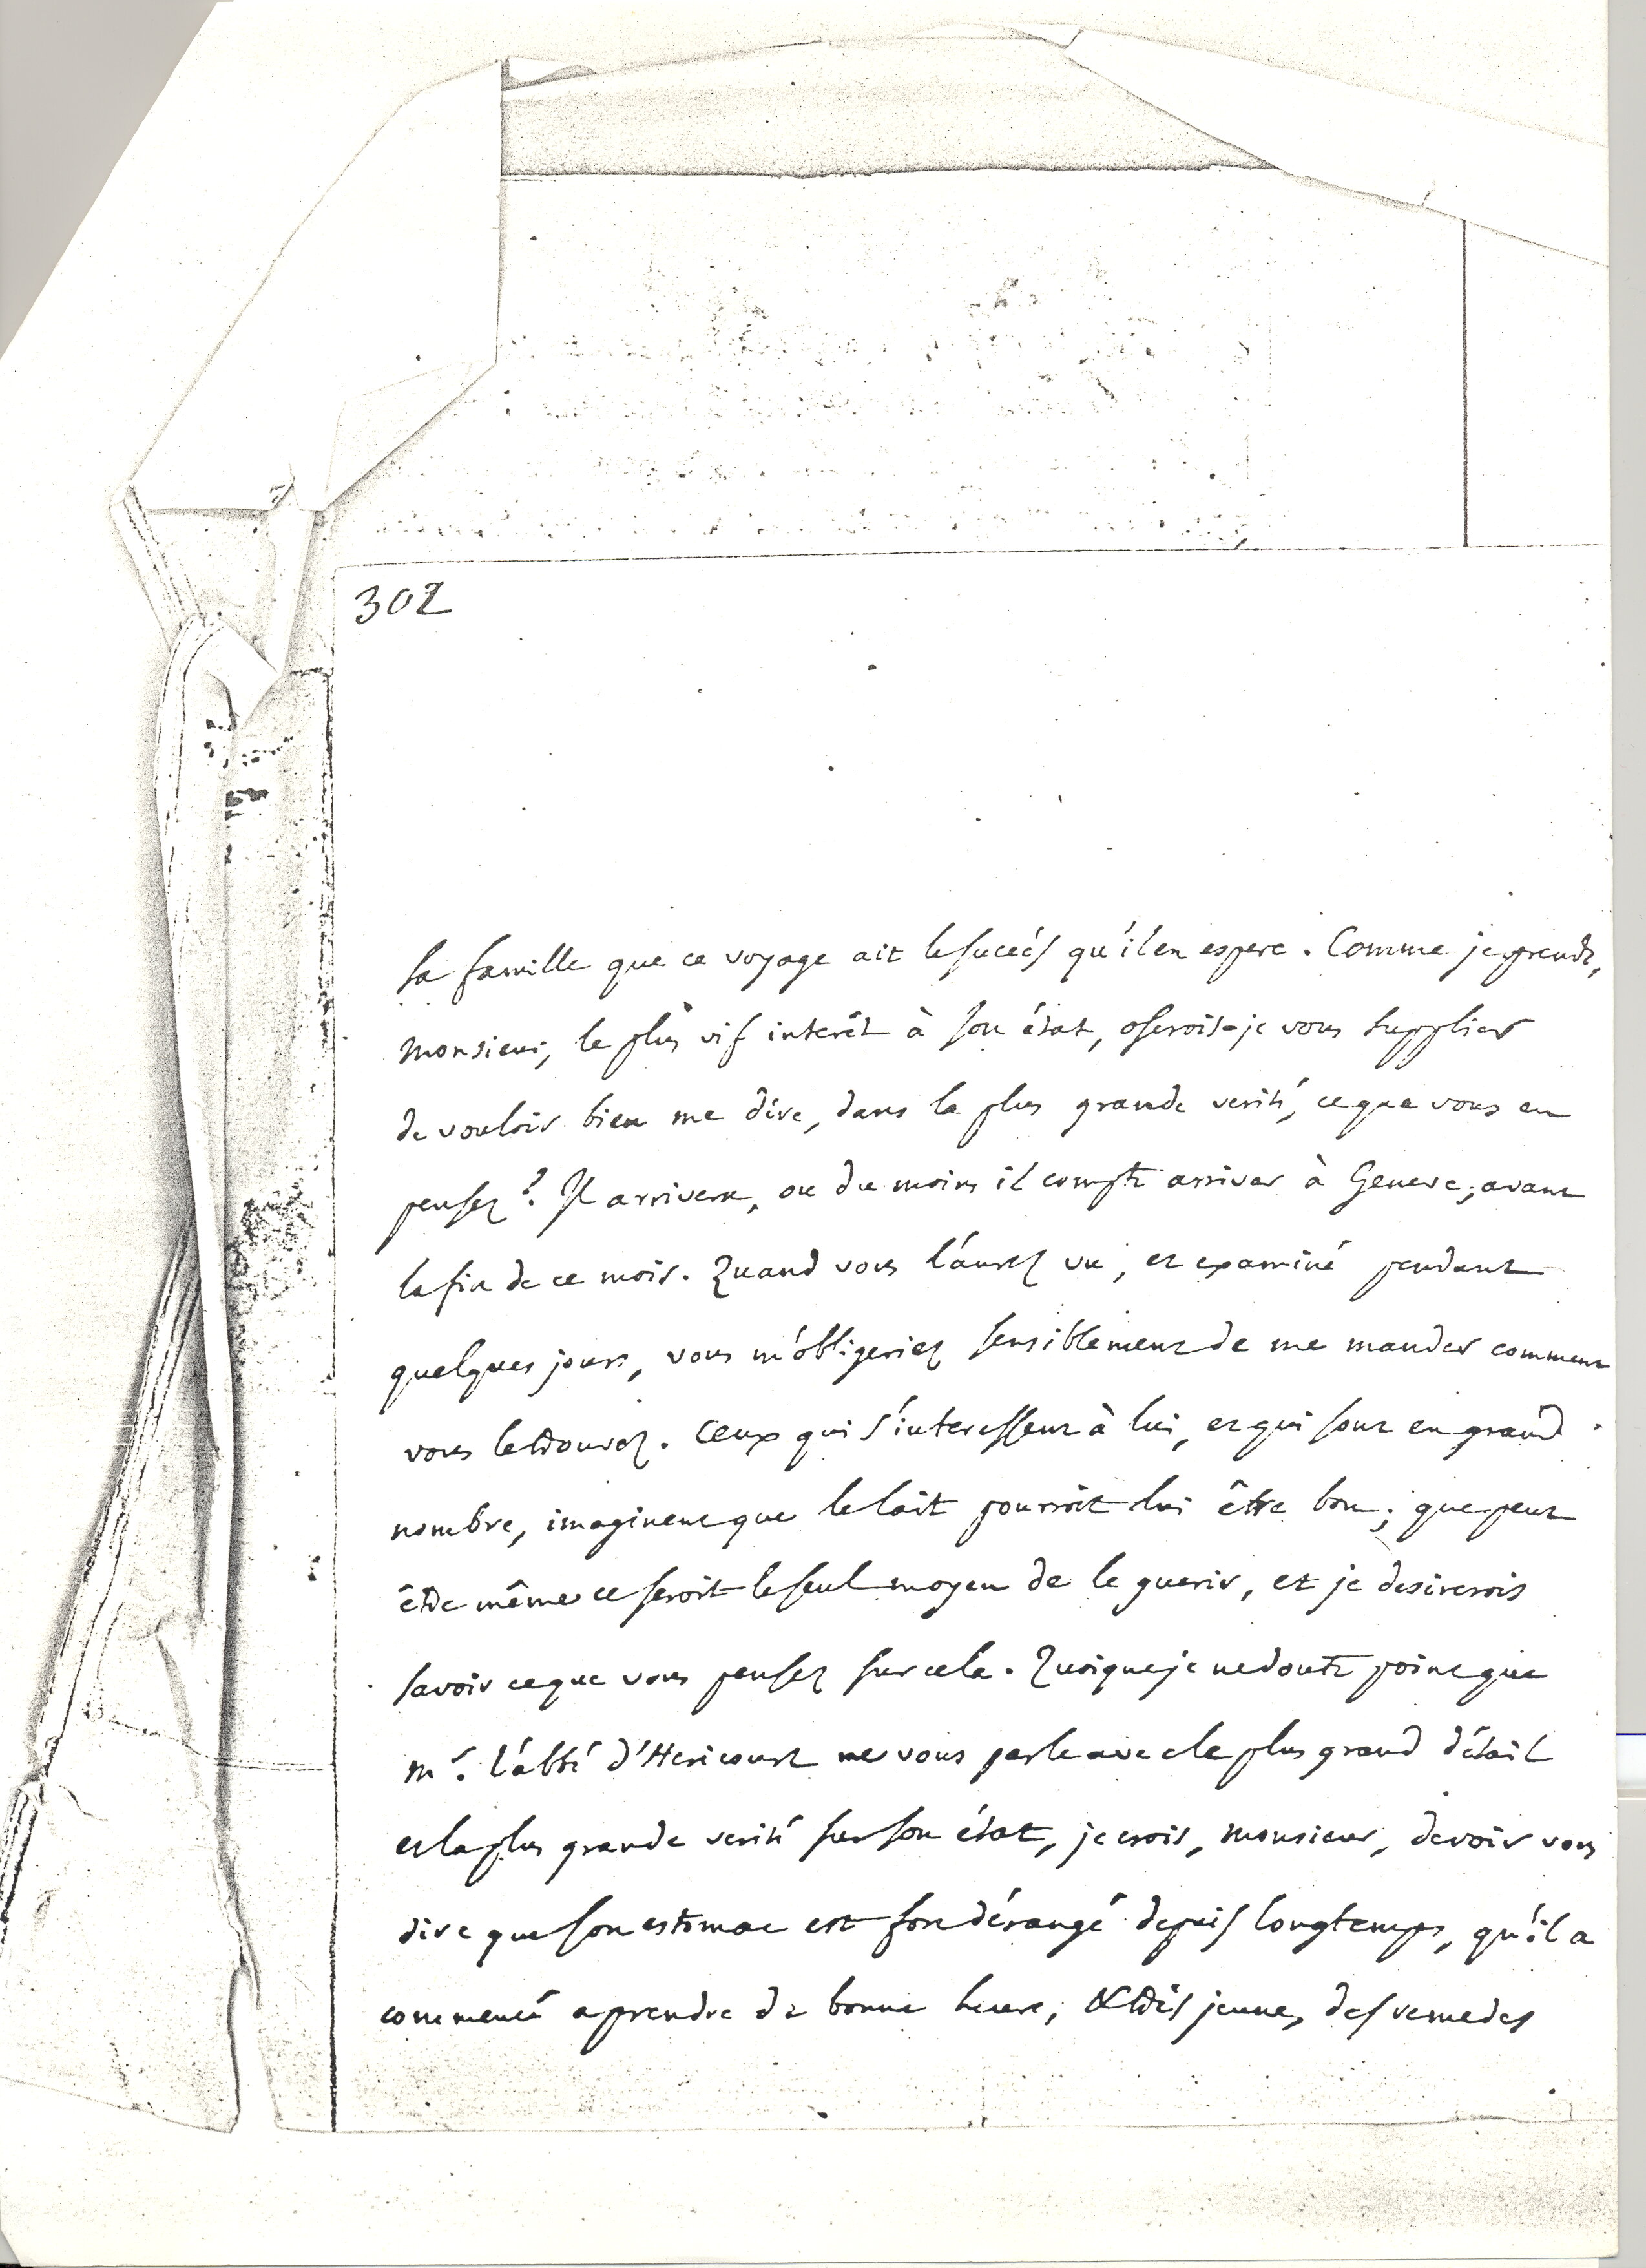 302
sa famille que ce voyage ait le succés qu'il en espere. Comme je prends,
Monsieur, le plus vif interêt à son état, oserois-je vous supplier
de vouloir bien me dire, dans la plus grande verité, ce que vous en
pensez? Il arrivera, ou du moins il compte arriver à Geneve, avant
la fin de ce mois. Quand vous l'aurez vu, et examiné pendant
quelques jours, vous m'obligeriez sensiblement de me mander comment
vous le trouvez. Ceux qui s'interessent à lui, et qui sont en grand
nombre, imaginent que le lait pourroit lui être bon; que peut
être même ce seroit le seul moyen de le guerir, et je desirerois
savoir ce que vous pensez sur cela. Quoique je ne doute point que
mr. l'abbé d'Hericourt ne vous parle avec le plus grand détail
et la plus grande verité sur son état, je crois, Monsieur, devoir vous
dire que son estomac est fort dérangé depuis longtemps, qu'il a
commencé a prendre de bonne heure, & très jeune, des remedes